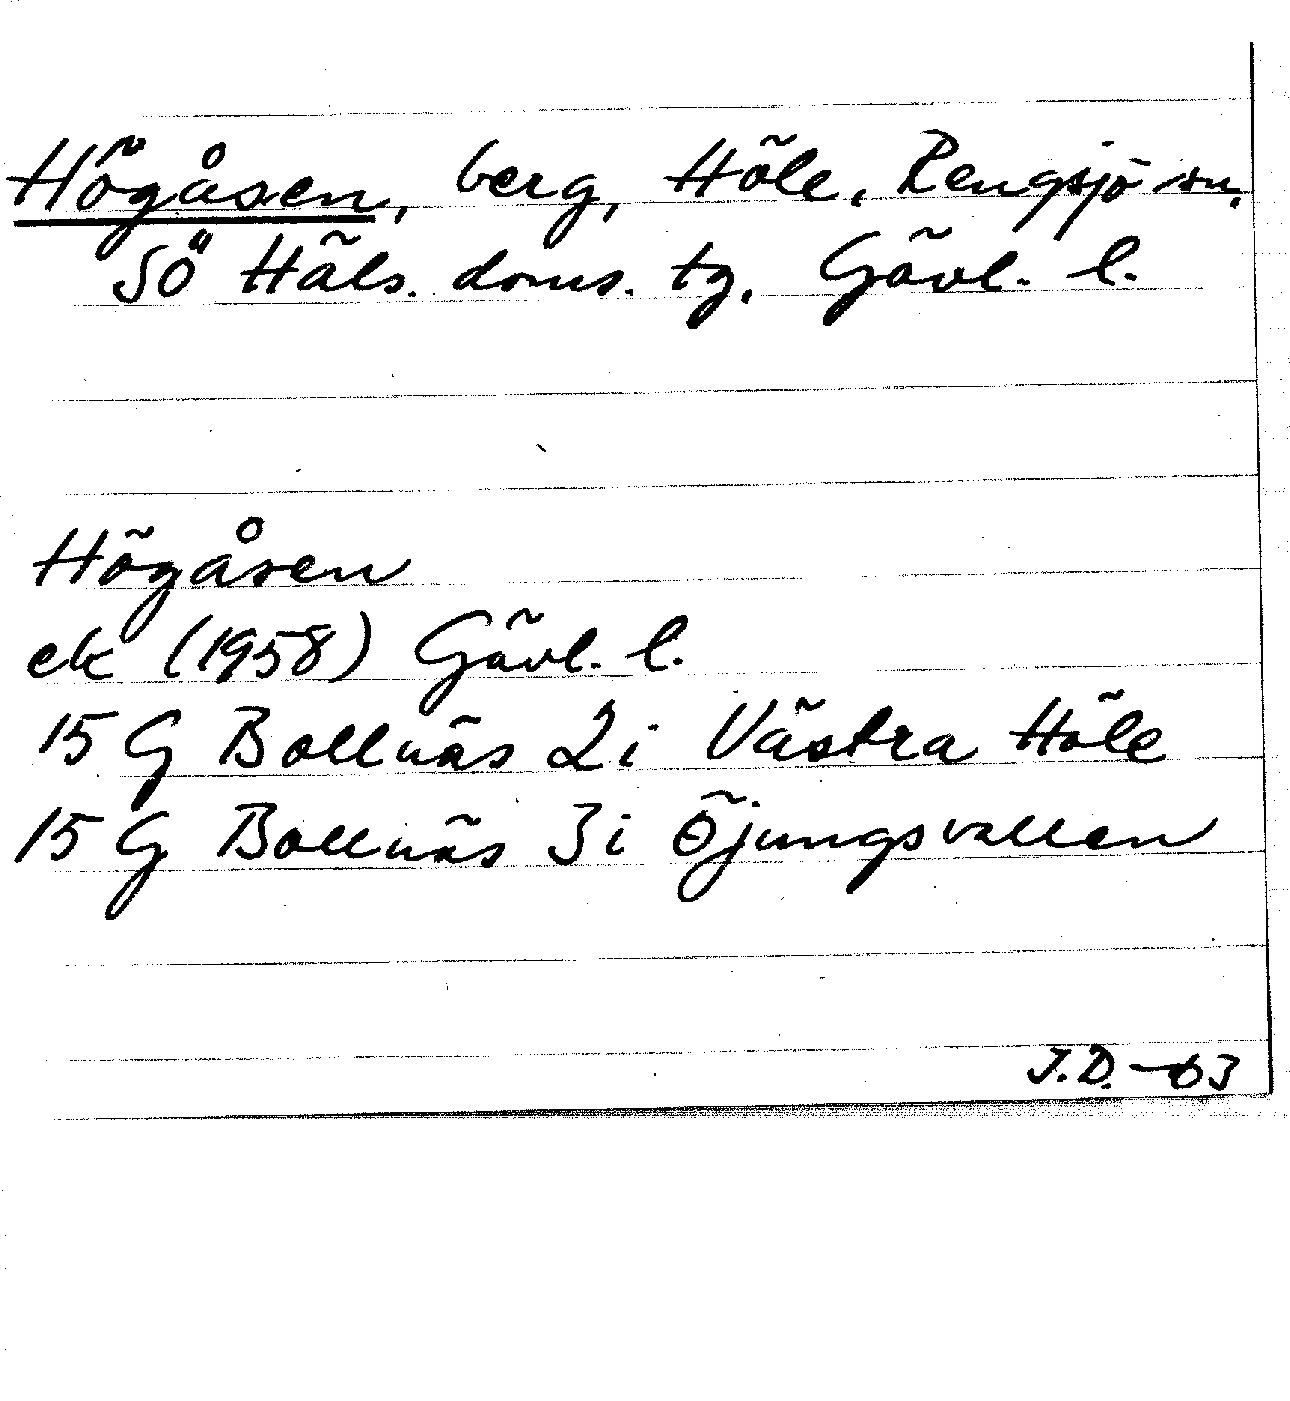 Högåsen, berg, Höle, Rengsjö sn,
Sö Häls. doms. tg. Gävl. l.
Högåsen
ek (1958) Gävl. l.
15 G Bollnäs 2 i Västra Höle
15 G Bollnäs 3 i Öjungsvallen
J.D. -63